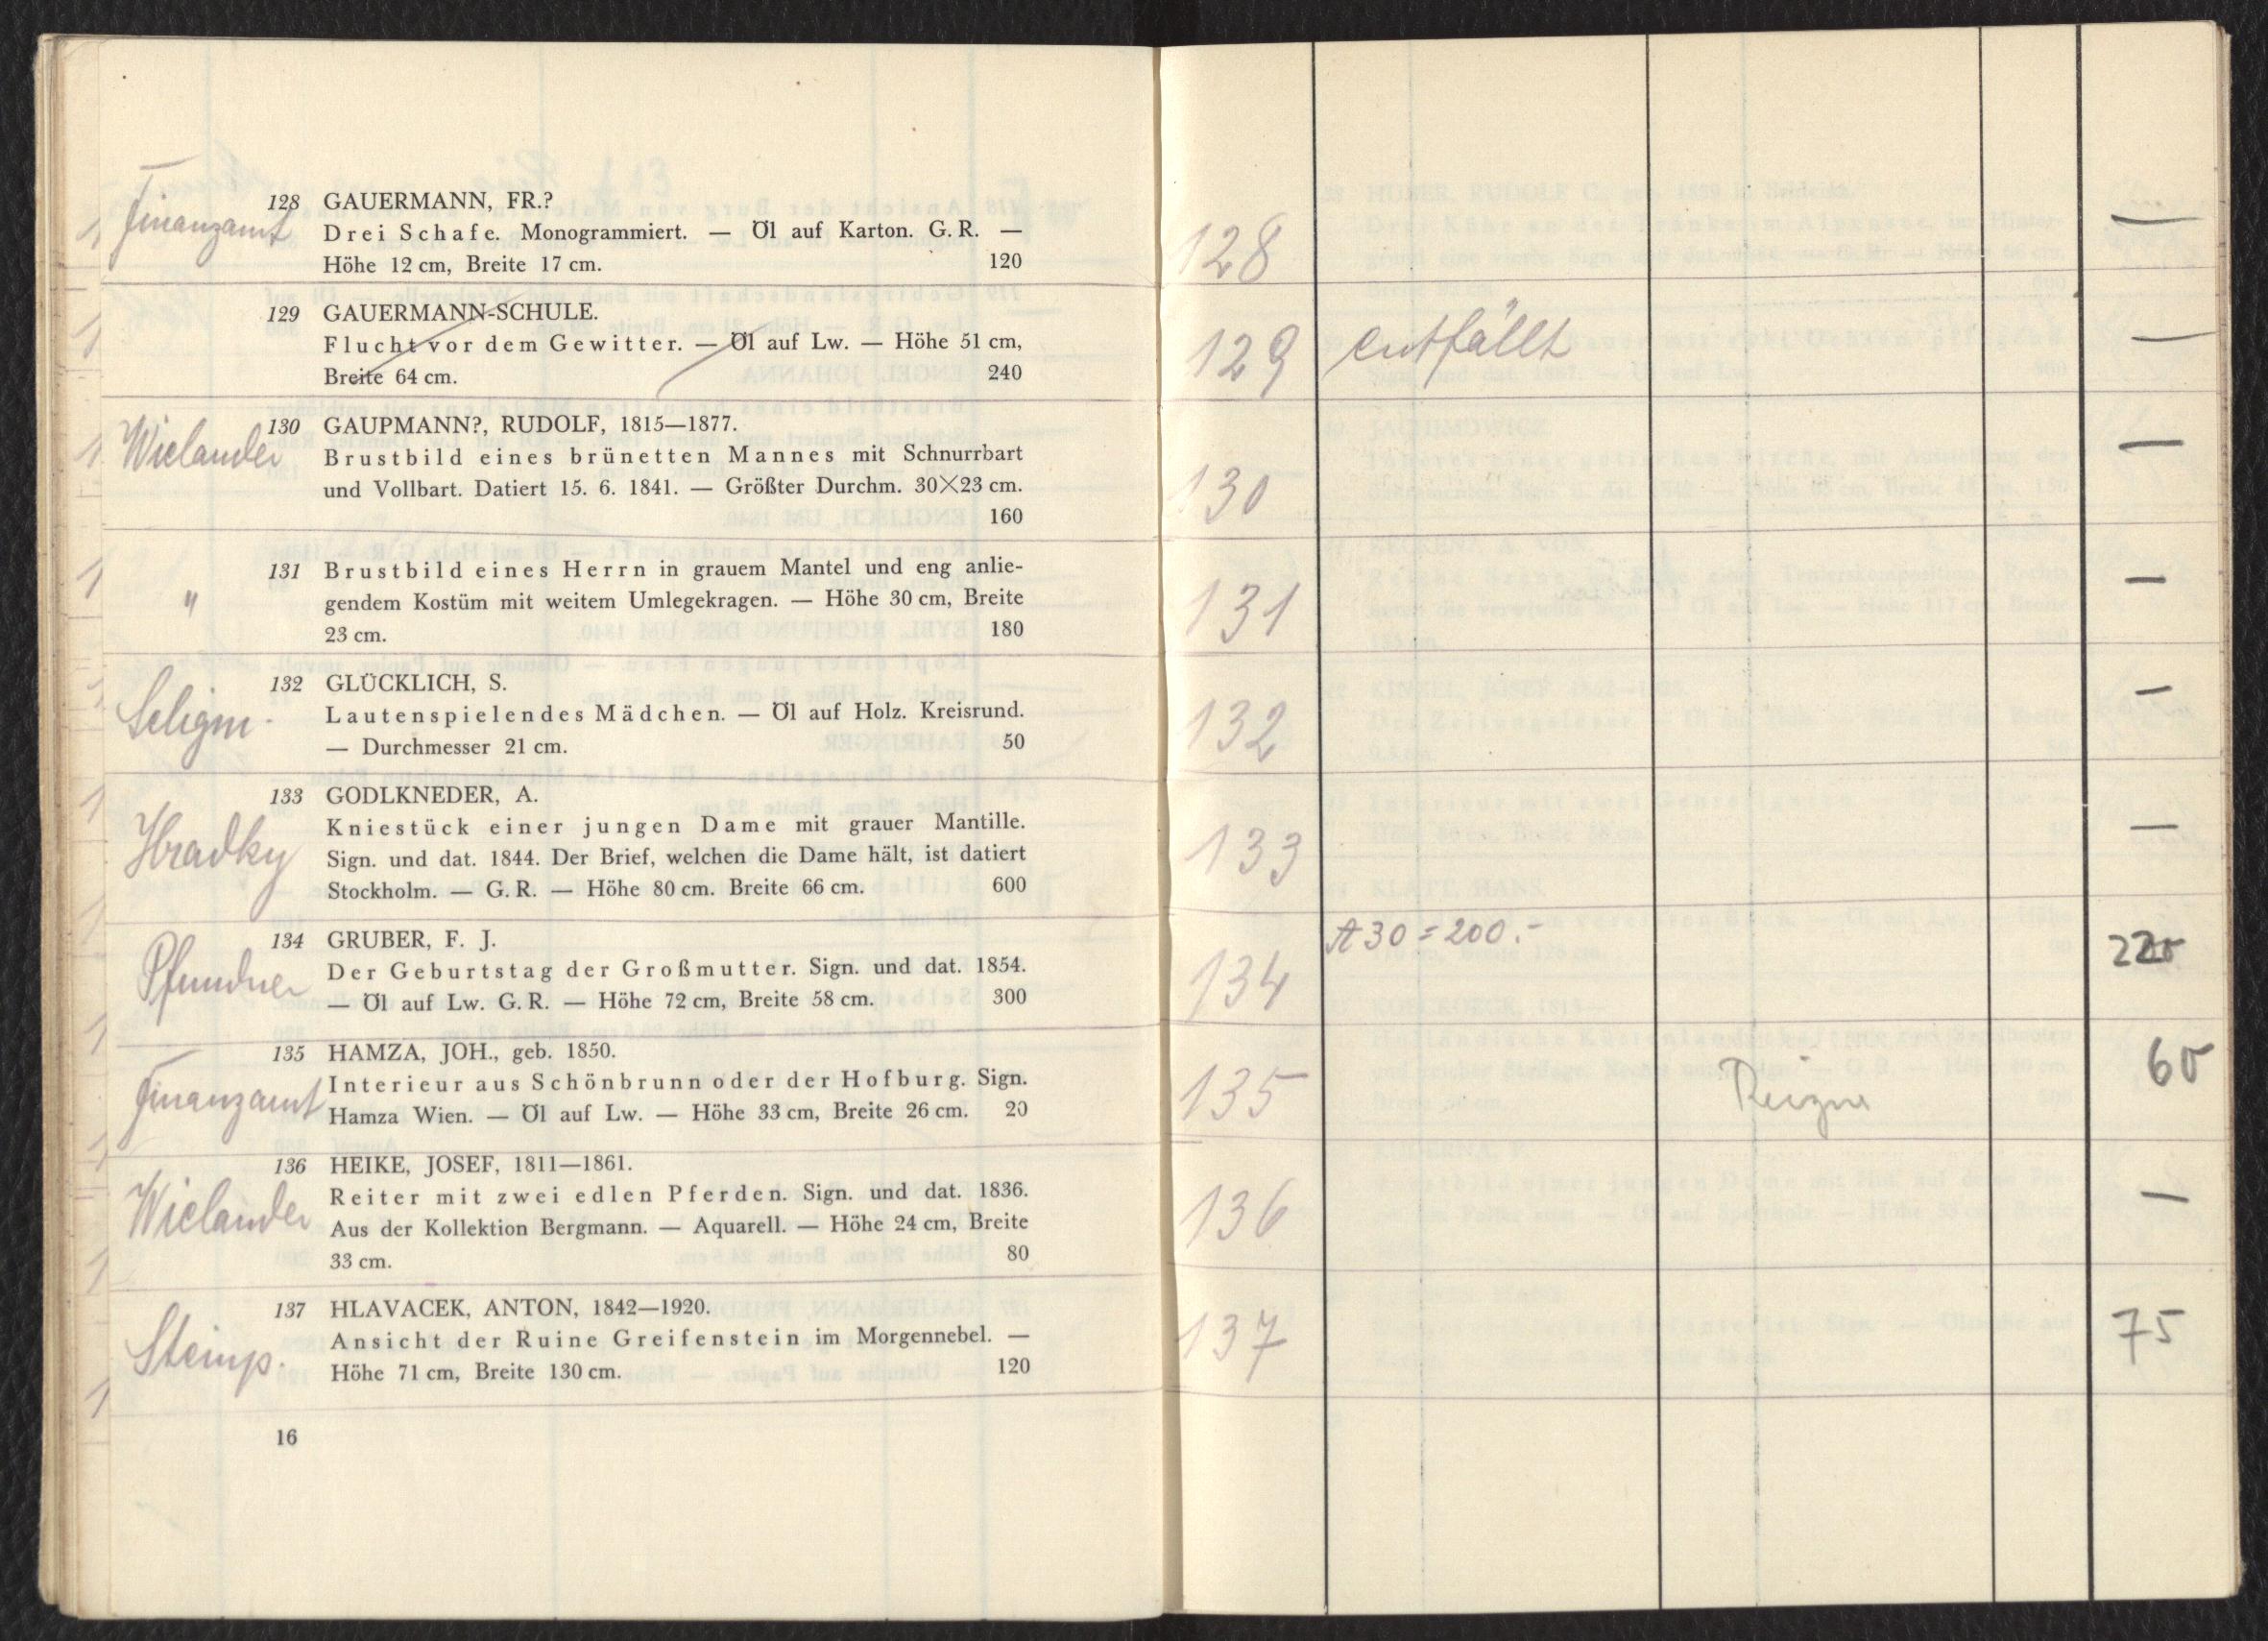 Finanzamt
128 GAUERMANN, FR.?
Drei Schafe. Monogrammiert. — Öl auf Karton. G. R. —
Höhe 12 cm, Breite 17 cm. 120
129 GAUERMANN-SCHULE.
Flucht vor dem Gewitter. — Öl auf Lw. — Höhe 51 cm,
Breite 64 cm. 240
Wielander
130 GAUPMANN?, RUDOLF, 1815—1877.
Brustbild eines brünetten Mannes mit Schnurrbart
und Vollbart. Datiert 15. 6. 1841. — Größter Durchm. 30×23 cm.
160
131 Brustbild eines Herrn in grauem Mantel und eng anlie-
" gendem Kostüm mit weitem Umlegekragen. — Höhe 30 cm, Breite
23 cm. 180
Seligm.
132 GLÜCKLICH, S.
Lautenspielendes Mädchen. — Öl auf Holz. Kreisrund.
— Durchmesser 21 cm. 50
Hradky
133 GODLKNEDER, A.
Kniestück einer jungen Dame mit grauer Mantille.
Sign. und dat. 1844. Der Brief, welchen die Dame hält, ist datiert
Stockholm. — G. R. — Höhe 80 cm. Breite 66 cm. 600
Pfundner
134 GRUBER, F. J.
Der Geburtstag der Großmutter. Sign. und dat. 1854.
— Öl auf Lw. G. R. — Höhe 72 cm, Breite 58 cm. 300
Finanzamt
135 HAMZA, JOH., geb. 1850.
Interieur aus Schönbrunn oder der Hofburg. Sign.
Hamza Wien. — Öl auf Lw. — Höhe 33 cm, Breite 26 cm. 20
Wielander
136 HEIKE, JOSEF, 1811—1861.
Reiter mit zwei edlen Pferden. Sign. und dat. 1836.
Aus der Kollektion Bergmann. — Aquarell. — Höhe 24 cm, Breite
33 cm. 80
Steinp.
137 HLAVACEK, ANTON, 1842—1920.
Ansicht der Ruine Greifenstein im Morgennebel. —
Höhe 71 cm, Breite 130 cm. 120
16
128 —
129 entfällt —
130 —
131 —
132 —
133 —
134 30 = 200.-
135 60
136 —
137 75